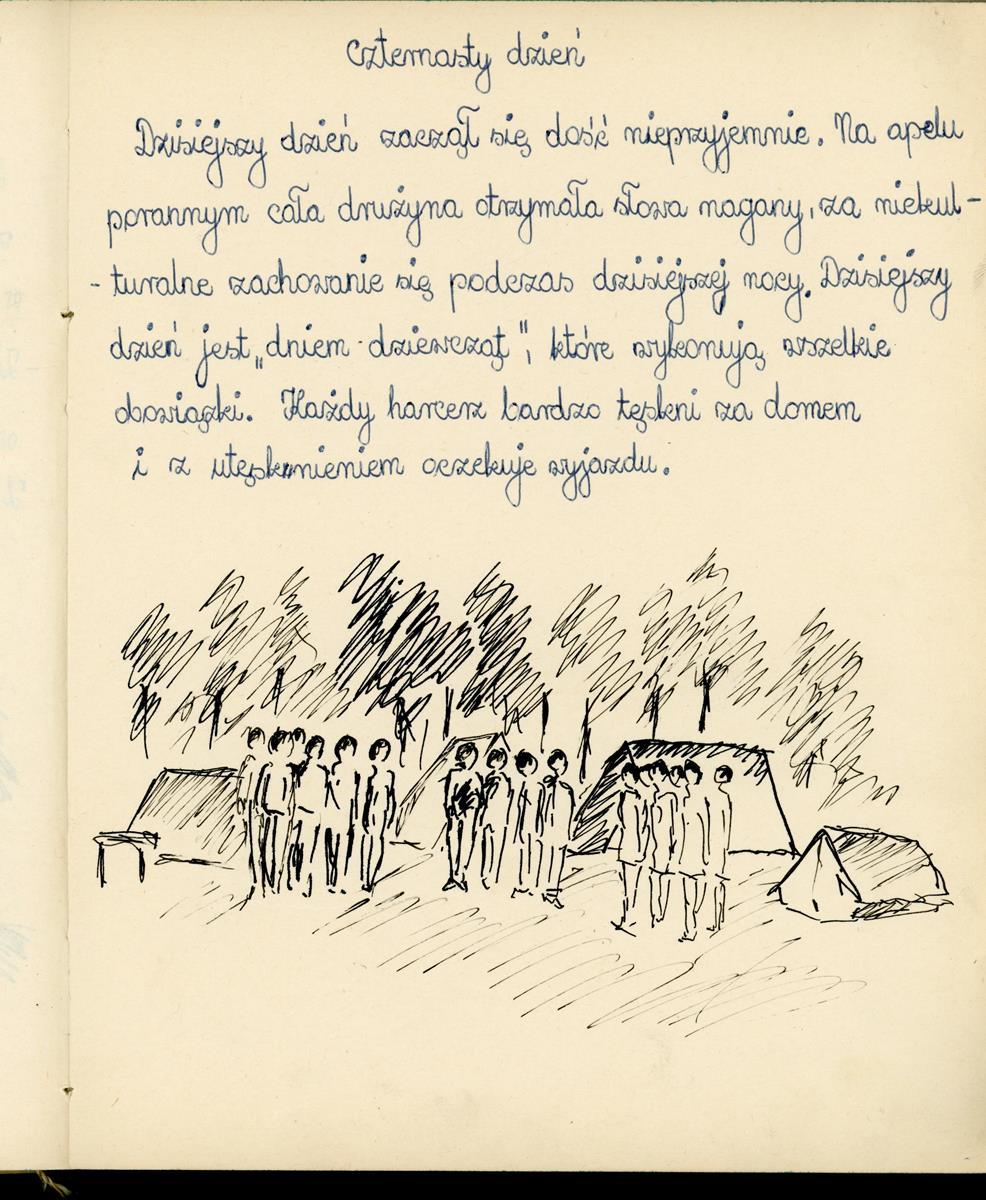 Czternasty dzień
Dzisiejszy dzień zaczął się dość nieprzyjemnie. Na apelu
porannym cała drużyna otrzymała słowa nagany, za niekul-
- turalne zachowanie się podczas dzisiejszej nocy. Dzisiejszy
dzień jest „dniem dziewcząt", które wykonują wszelkie
obowiązki. Każdy harcerz bardzo tęskni za domem
i z utęsknieniem oczekuje wyjazdu.